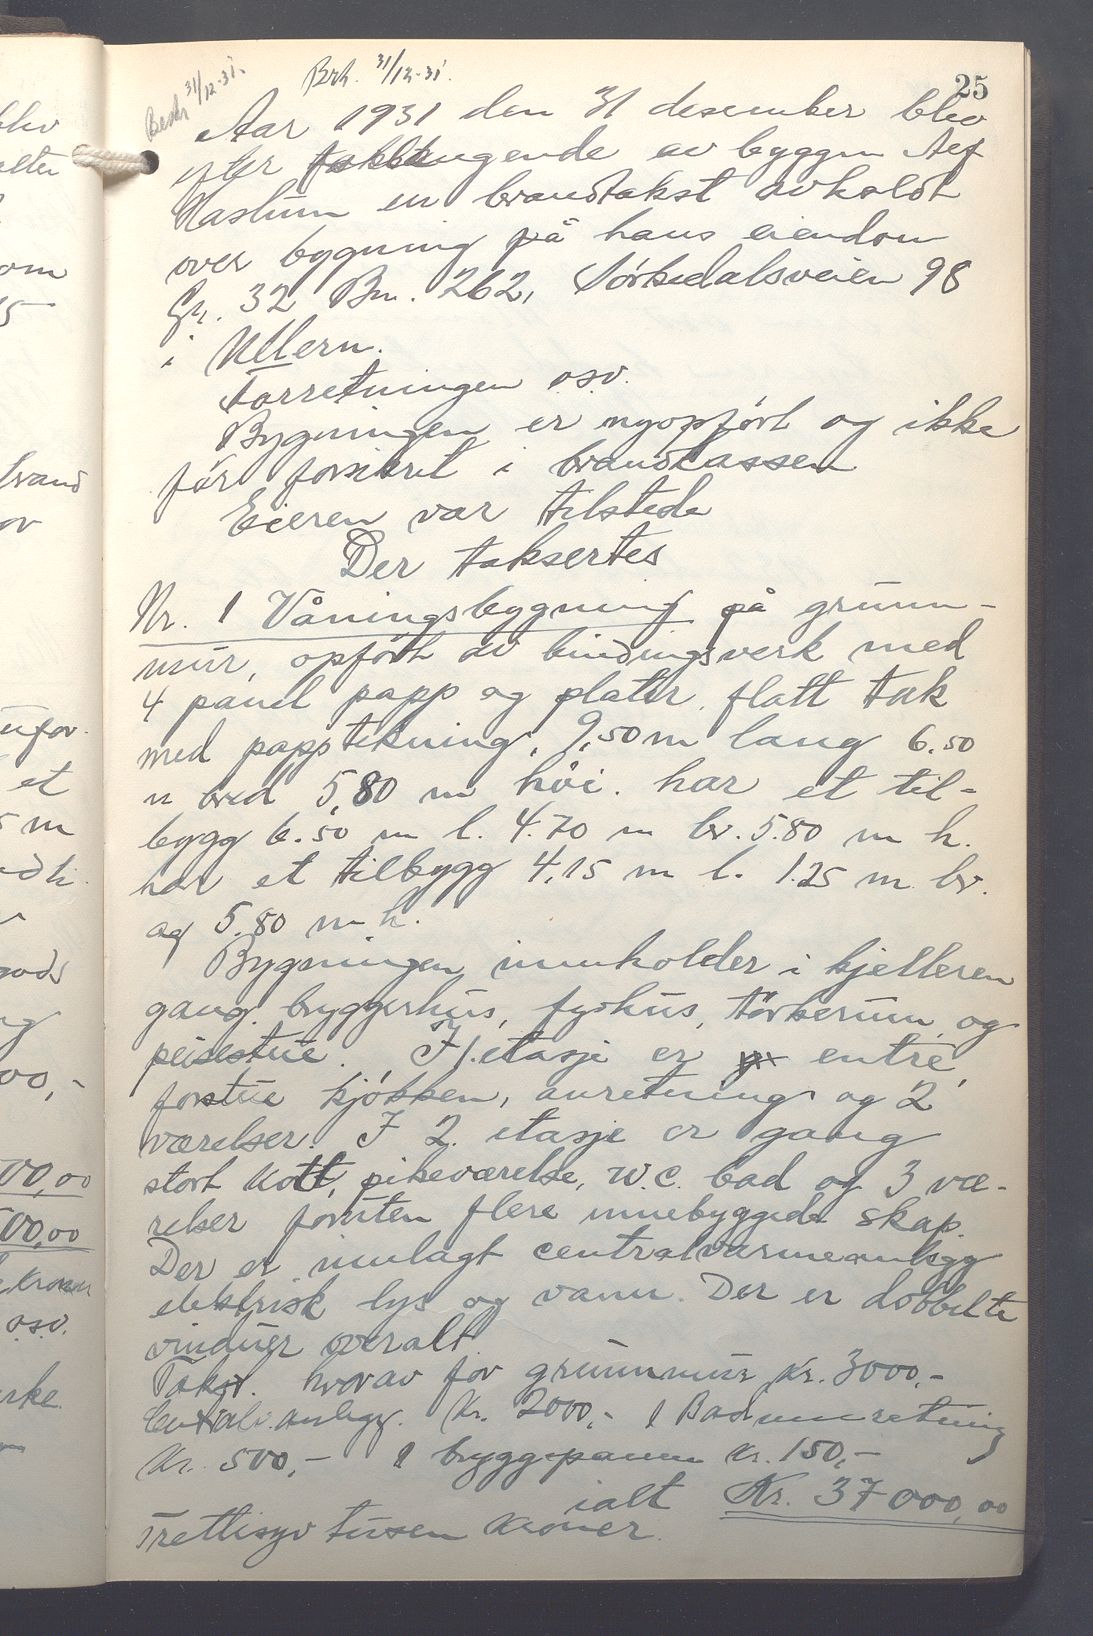 25
Beskr 31/12-31.
Brh. 31/12-31.
Aar 1931 den 31 desember blev
efter forlangende av byggm Alf
Naslum en brandtakst avholdt
over bygning på hans eiendom
Gn. 32 Bn. 262, Sörkedalsveien 98
i Ullern.
Forretningen osv.
Bygningen er nyopfört og ikke
för forsikret i brandkassen
Eieren var tilstede
Der taksertes
Nr. 1 Våningsbygning på grunn-
mur, opfört av bindingsverk med
4 panel papp og plater. flatt tak
med papptekning. 9,50 m lang 6.50
m bred 5,80 m höi. har et til-
bygg 6.50 m l. 4.70 m br. 5.80 m h.
har et tilbygg 4,15 m l. 1.25 m br.
og 5.80 m h.
Bygningen innholder i kjelleren
gang, bryggerhus, fyrhus, törkerum og
peisestue. I 1. etasje er entre,
forstue kjökken, anretning og 2
værelser. I 2. etasje er gang
stort kott, pikeværelse, W.C. bad og 3 væ-
relser foruten flere innebyggede skap.
Der er innlagt centralvarmeanlegg
elektrisk lys og vann. Der er dobbelte
vinduer overalt.
Takst. hvorav for grunnmur Kr. 3000,-
Centralv.anlegg. Kr. 2000,- 1 Badinnretning
Kr. 500,- 1 bryggepanne Kr. 150,-
ialt Kr. 37000,00
Trettisyv tusen kroner.